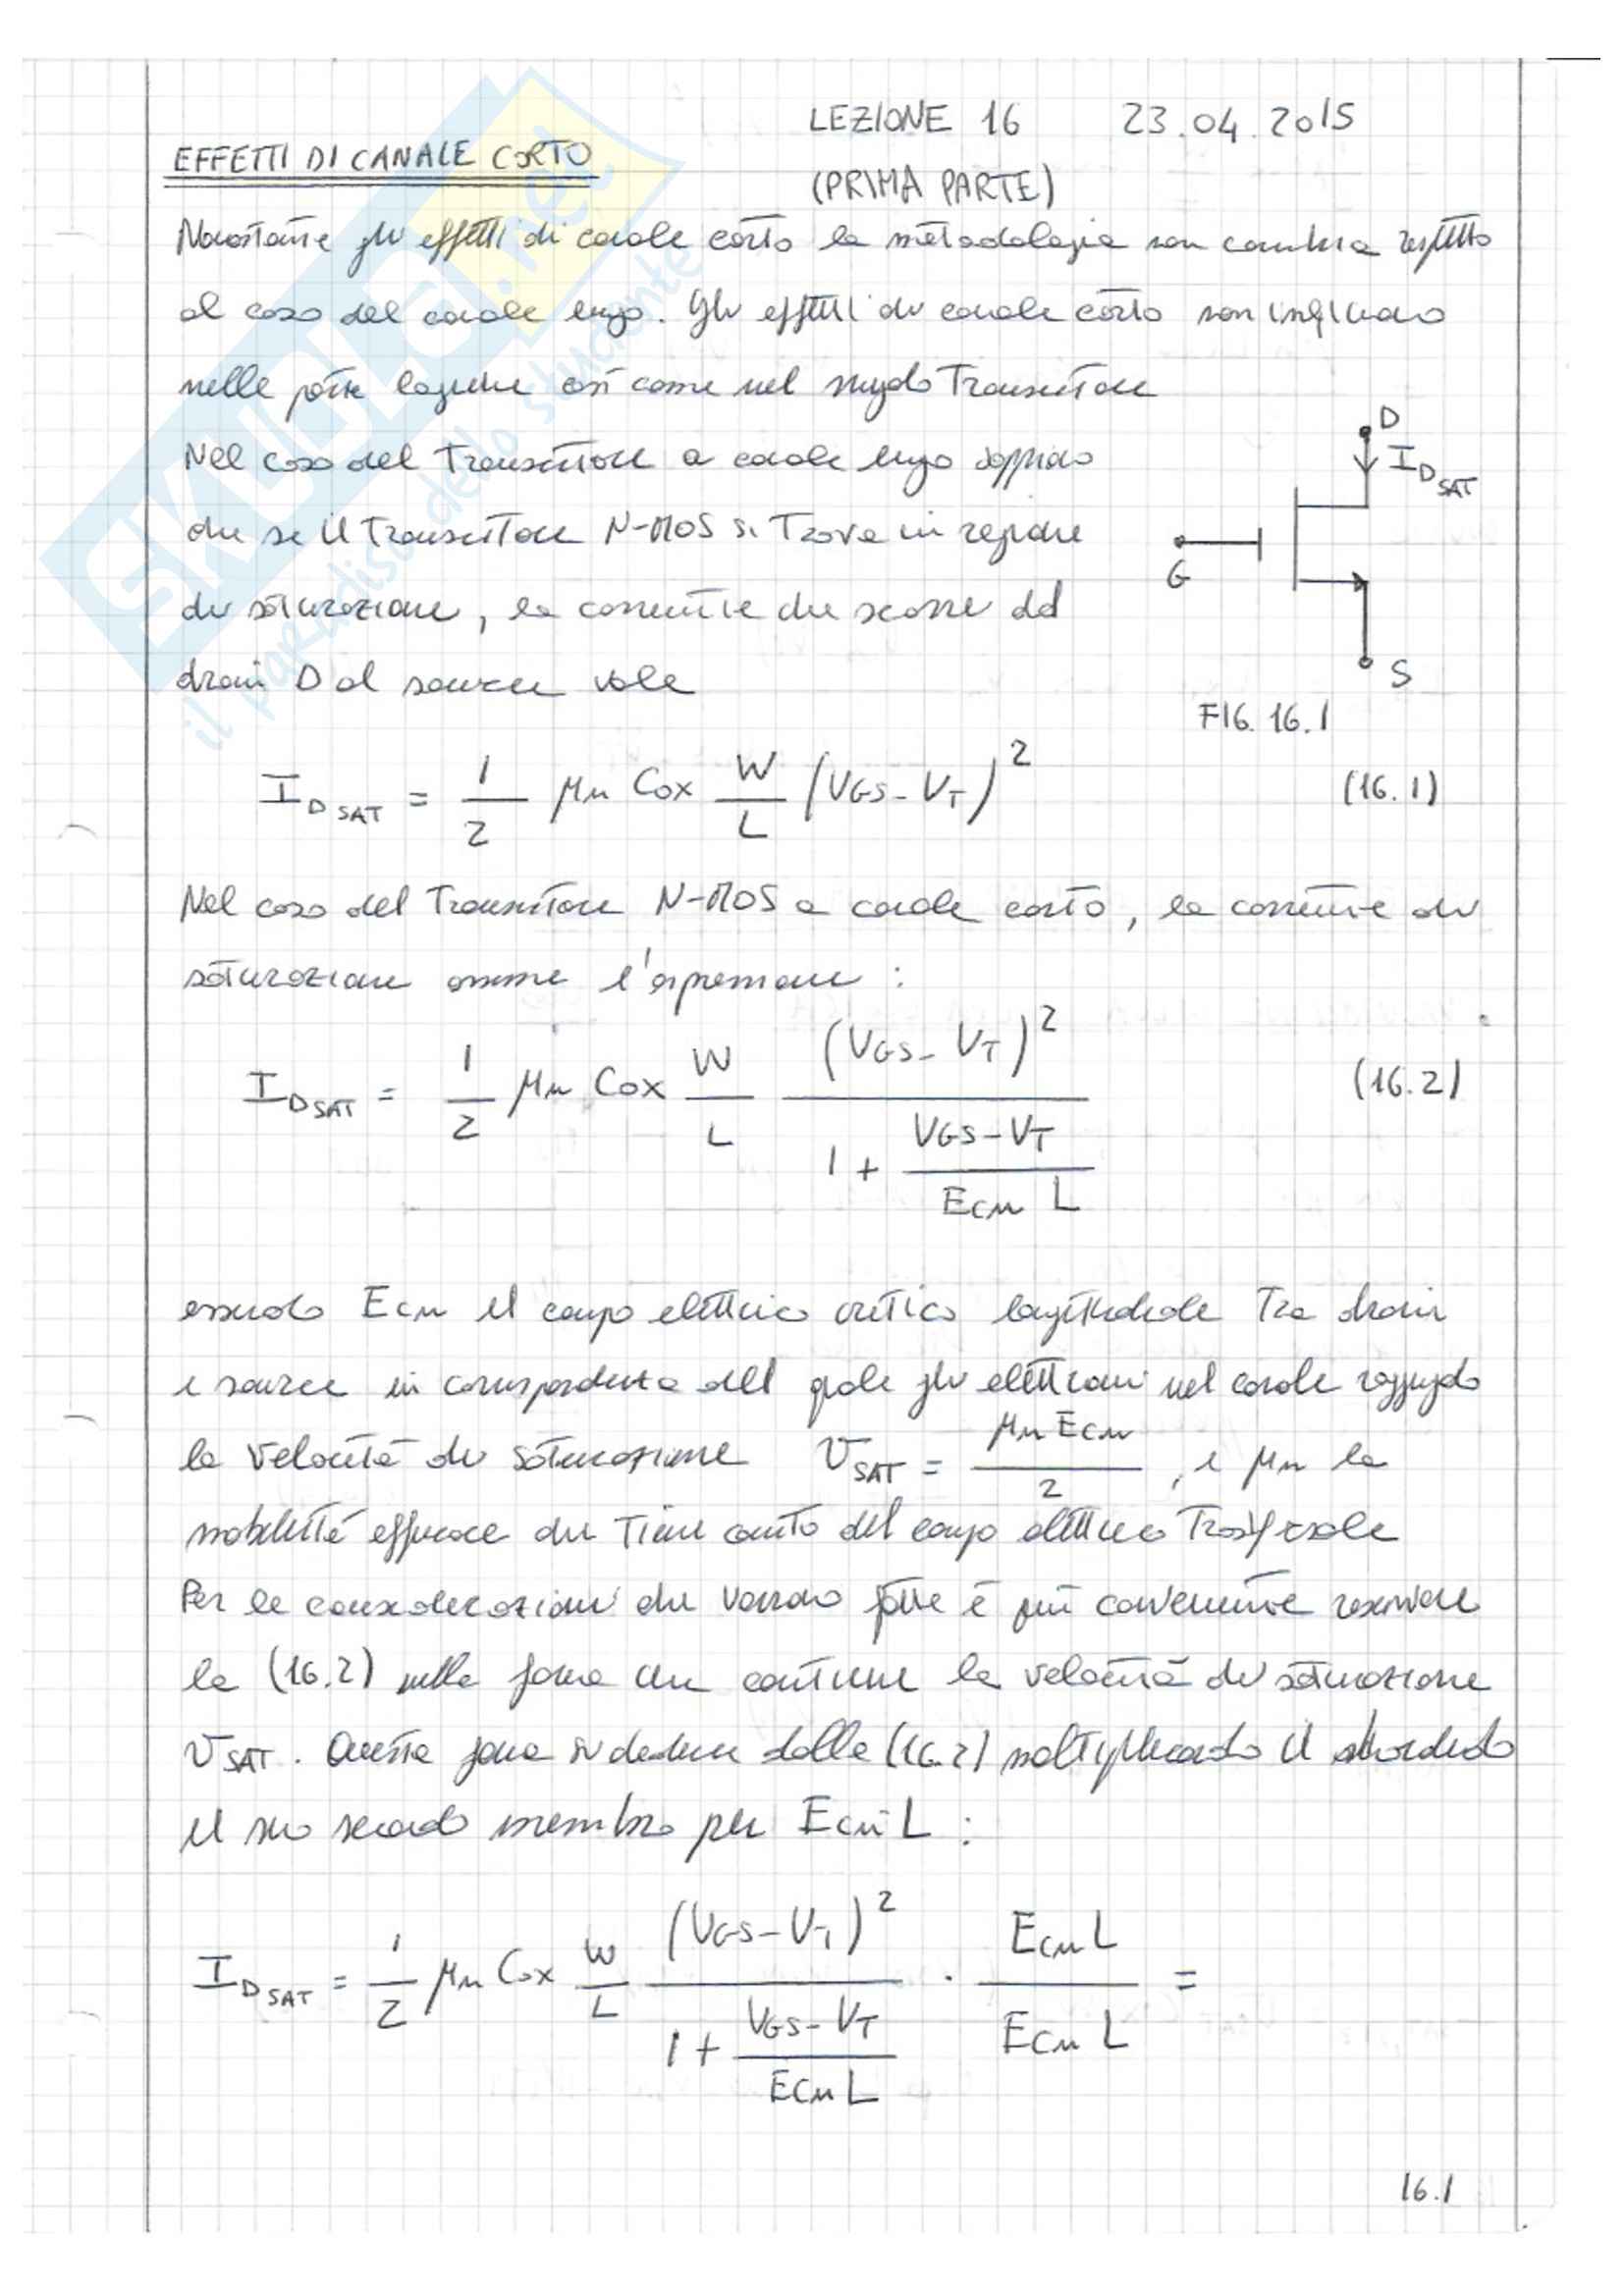 LEZIONE 16 23.04.2015
EFFETTI DI CANALE CORTO
(PRIMA PARTE)
Nonostante gli effetti di canale corto la metodologia non cambia rispetto
al caso del canale lungo. Gli effetti di canale corto non influiscono
nelle porte logiche così come nel singolo transistore
Nel caso del transistore a canale lungo sappiamo
che se il transistore N-MOS si trova in regione
di saturazione, la corrente che scorre dal
drain D al source vale
D
I_DSAT
G
S
FIG. 16.1
I_DSAT = 1/2 μn Cox W/L (VGS - VT)² (16.1)
Nel caso del transistore N-MOS a canale corto, la corrente di
saturazione assume l'espressione :
I_DSAT = 1/2 μn Cox W/L (VGS - VT)² / (1 + (VGS - VT)/(Ecn L)) (16.2)
essendo Ecn il campo elettrico critico longitudinale tra drain
e source in corrispondenza del quale gli elettroni nel canale raggiungono
la velocità di saturazione v_SAT = μn Ecn / 2 , e μn la
mobilità efficace che tiene conto del campo elettrico trasversale
Per le considerazioni che verranno fatte è più conveniente riscrivere
la (16.2) nella forma che contiene la velocità di saturazione
v_SAT. Questa forma si deduce dalla (16.2) moltiplicando e dividendo
il suo secondo membro per Ecn L :
I_DSAT = 1/2 μn Cox W/L (VGS - VT)² / (1 + (VGS - VT)/(Ecn L)) · Ecn L / Ecn L =
16.1
SKUOLA.net
il paradiso dello studente